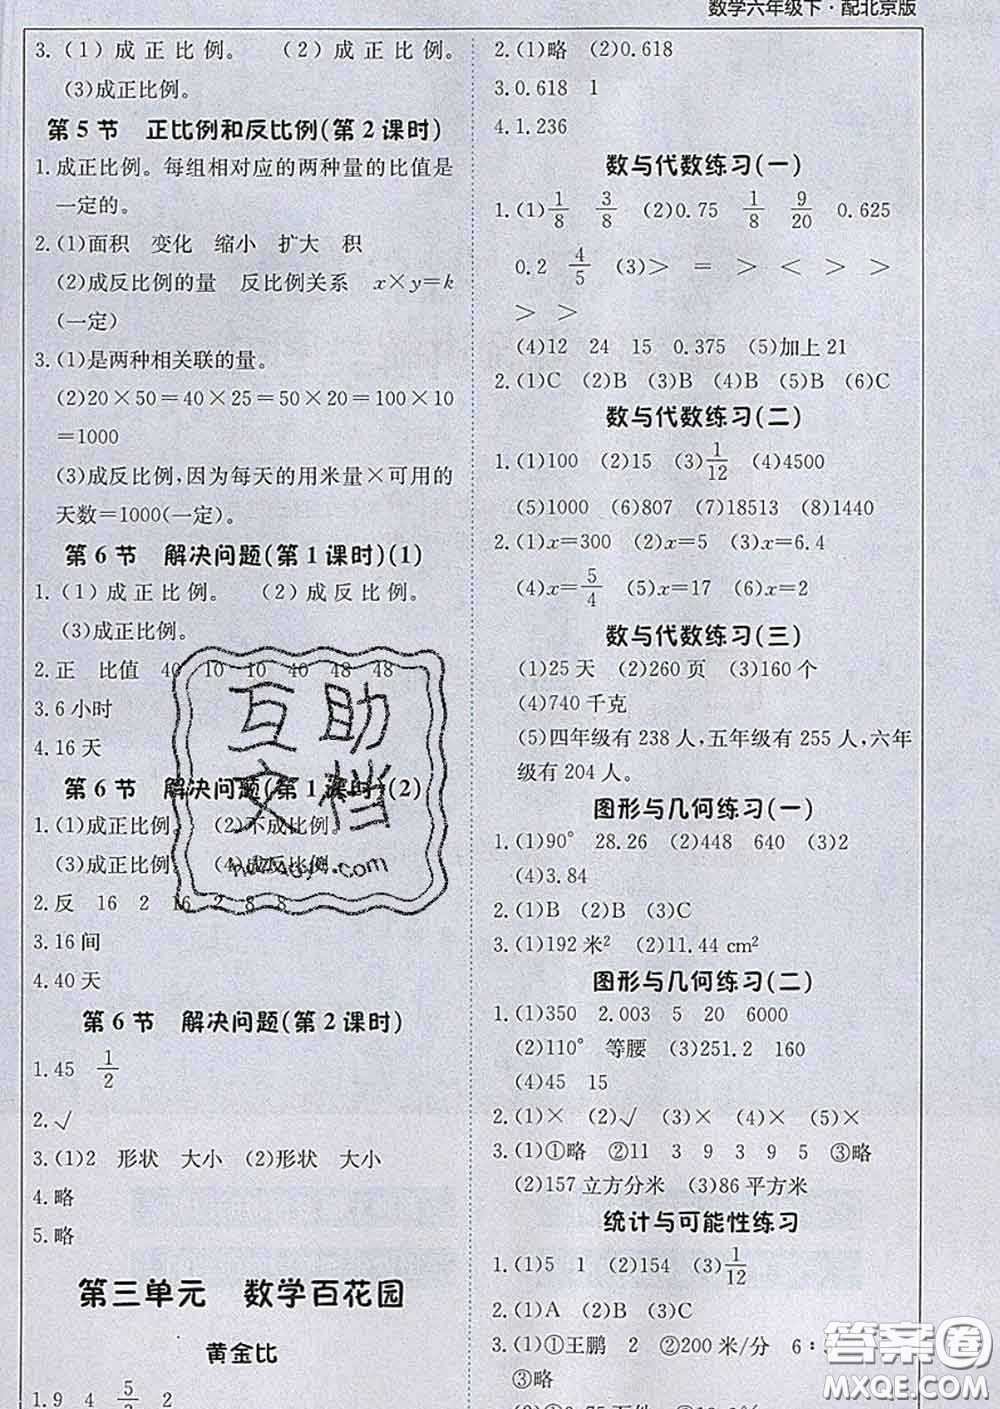 数学六年级下·配北京版
3.(1)成正比例。 (2)成正比例。
(3)成正比例。
第5节 正比例和反比例(第2课时)
1.成正比例。每组相对应的两种量的比值是
一定的。
2.(1)面积 变化 缩小 扩大 积
(2)成反比例的量 反比例关系 x×y=k
(一定)
3.(1)是两种相关联的量。
(2)20×50=40×25=50×20=100×10
=1000
(3)成反比例,因为每天的用米量×可用的
天数=1000(一定)。
第6节 解决问题(第1课时)(1)
1.(1)成正比例。 (2)成反比例。
(3)成正比例。
2.正 比值 40 10 10 40 48 48
3.6小时
4.16天
第6节 解决问题(第1课时)(2)
1.(1)成正比例。 (2)不成比例。
(3)成正比例。 (4)成反比例。
2.反 16 2 16 2 8 8
3.16间
4.40天
第6节 解决问题(第2课时)
1.45 1/2
2.√
3.(1)2 形状 大小 (2)形状 大小
4.略
5.略
第三单元 数学百花园
黄金比
1.9 4 5/3 2
2.(1)略 (2)0.618
3.0.618 1
4.1.236
数与代数练习(一)
1.(1)1/8 3/8 (2)0.75 1/8 9/20 0.625
0.2 4/5 (3)> = > < > >
> > >
(4)12 24 15 0.375 (5)加上21
2.(1)C (2)B (3)B (4)B (5)B (6)C
数与代数练习(二)
1.(1)100 (2)15 (3)1/12 (4)4500
(5)1000 (6)807 (7)18513 (8)1440
2.(1)x=300 (2)x=5 (3)x=6.4
(4)x=5/4 (5)x=17 (6)x=2
数与代数练习(三)
(1)25天 (2)260页 (3)160个
(4)740千克
(5)四年级有238人,五年级有255人,六年
级有204人。
图形与几何练习(一)
1.(1)90° 28.26 (2)448 640 (3)2
(4)3.84
2.(1)B (2)B (3)C
3.(1)192米² (2)11.44 cm²
图形与几何练习(二)
1.(1)350 2.003 5 20 6000
(2)110° 等腰 (3)251.2 160
(4)45 15
2.(1)× (2)√ (3)× (4)× (5)×
3.(1)①略 ②11 3 9 3 9 5 ③略
(2)157立方分米 (3)86平方米
统计与可能性练习
1.(1)5 1 (2)154 (3)1/12
2.(1)A (2)B (3)C
3.(1)①王鹏 2 ②200米/分 6:
③略
互助
文档
答案圈
MXQE.COM